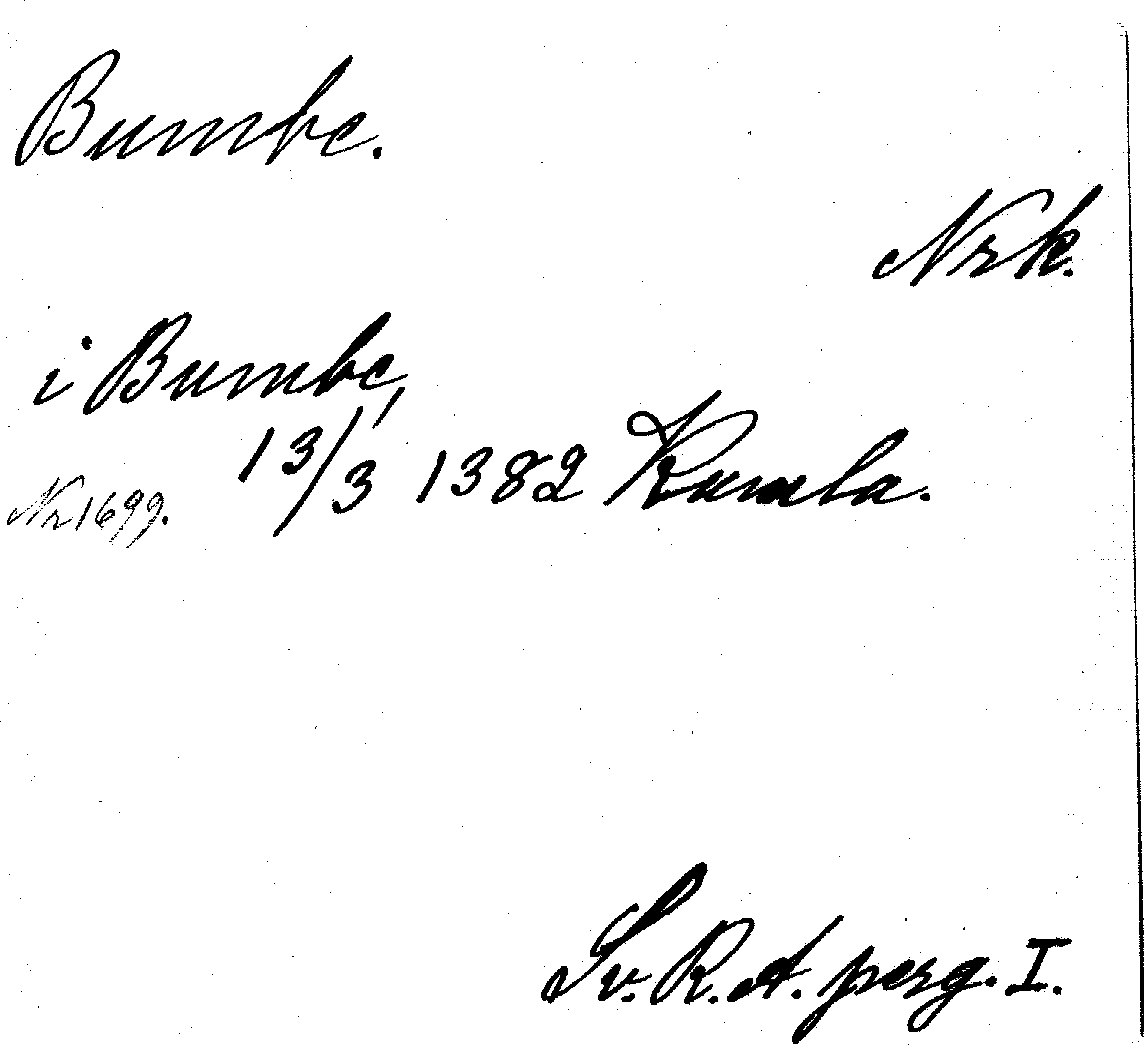 Bumbe.
Nrk.
i Bumbe,
13/3 1382 Kumla.
Nr 1699.
Sv. R. A. perg. I.